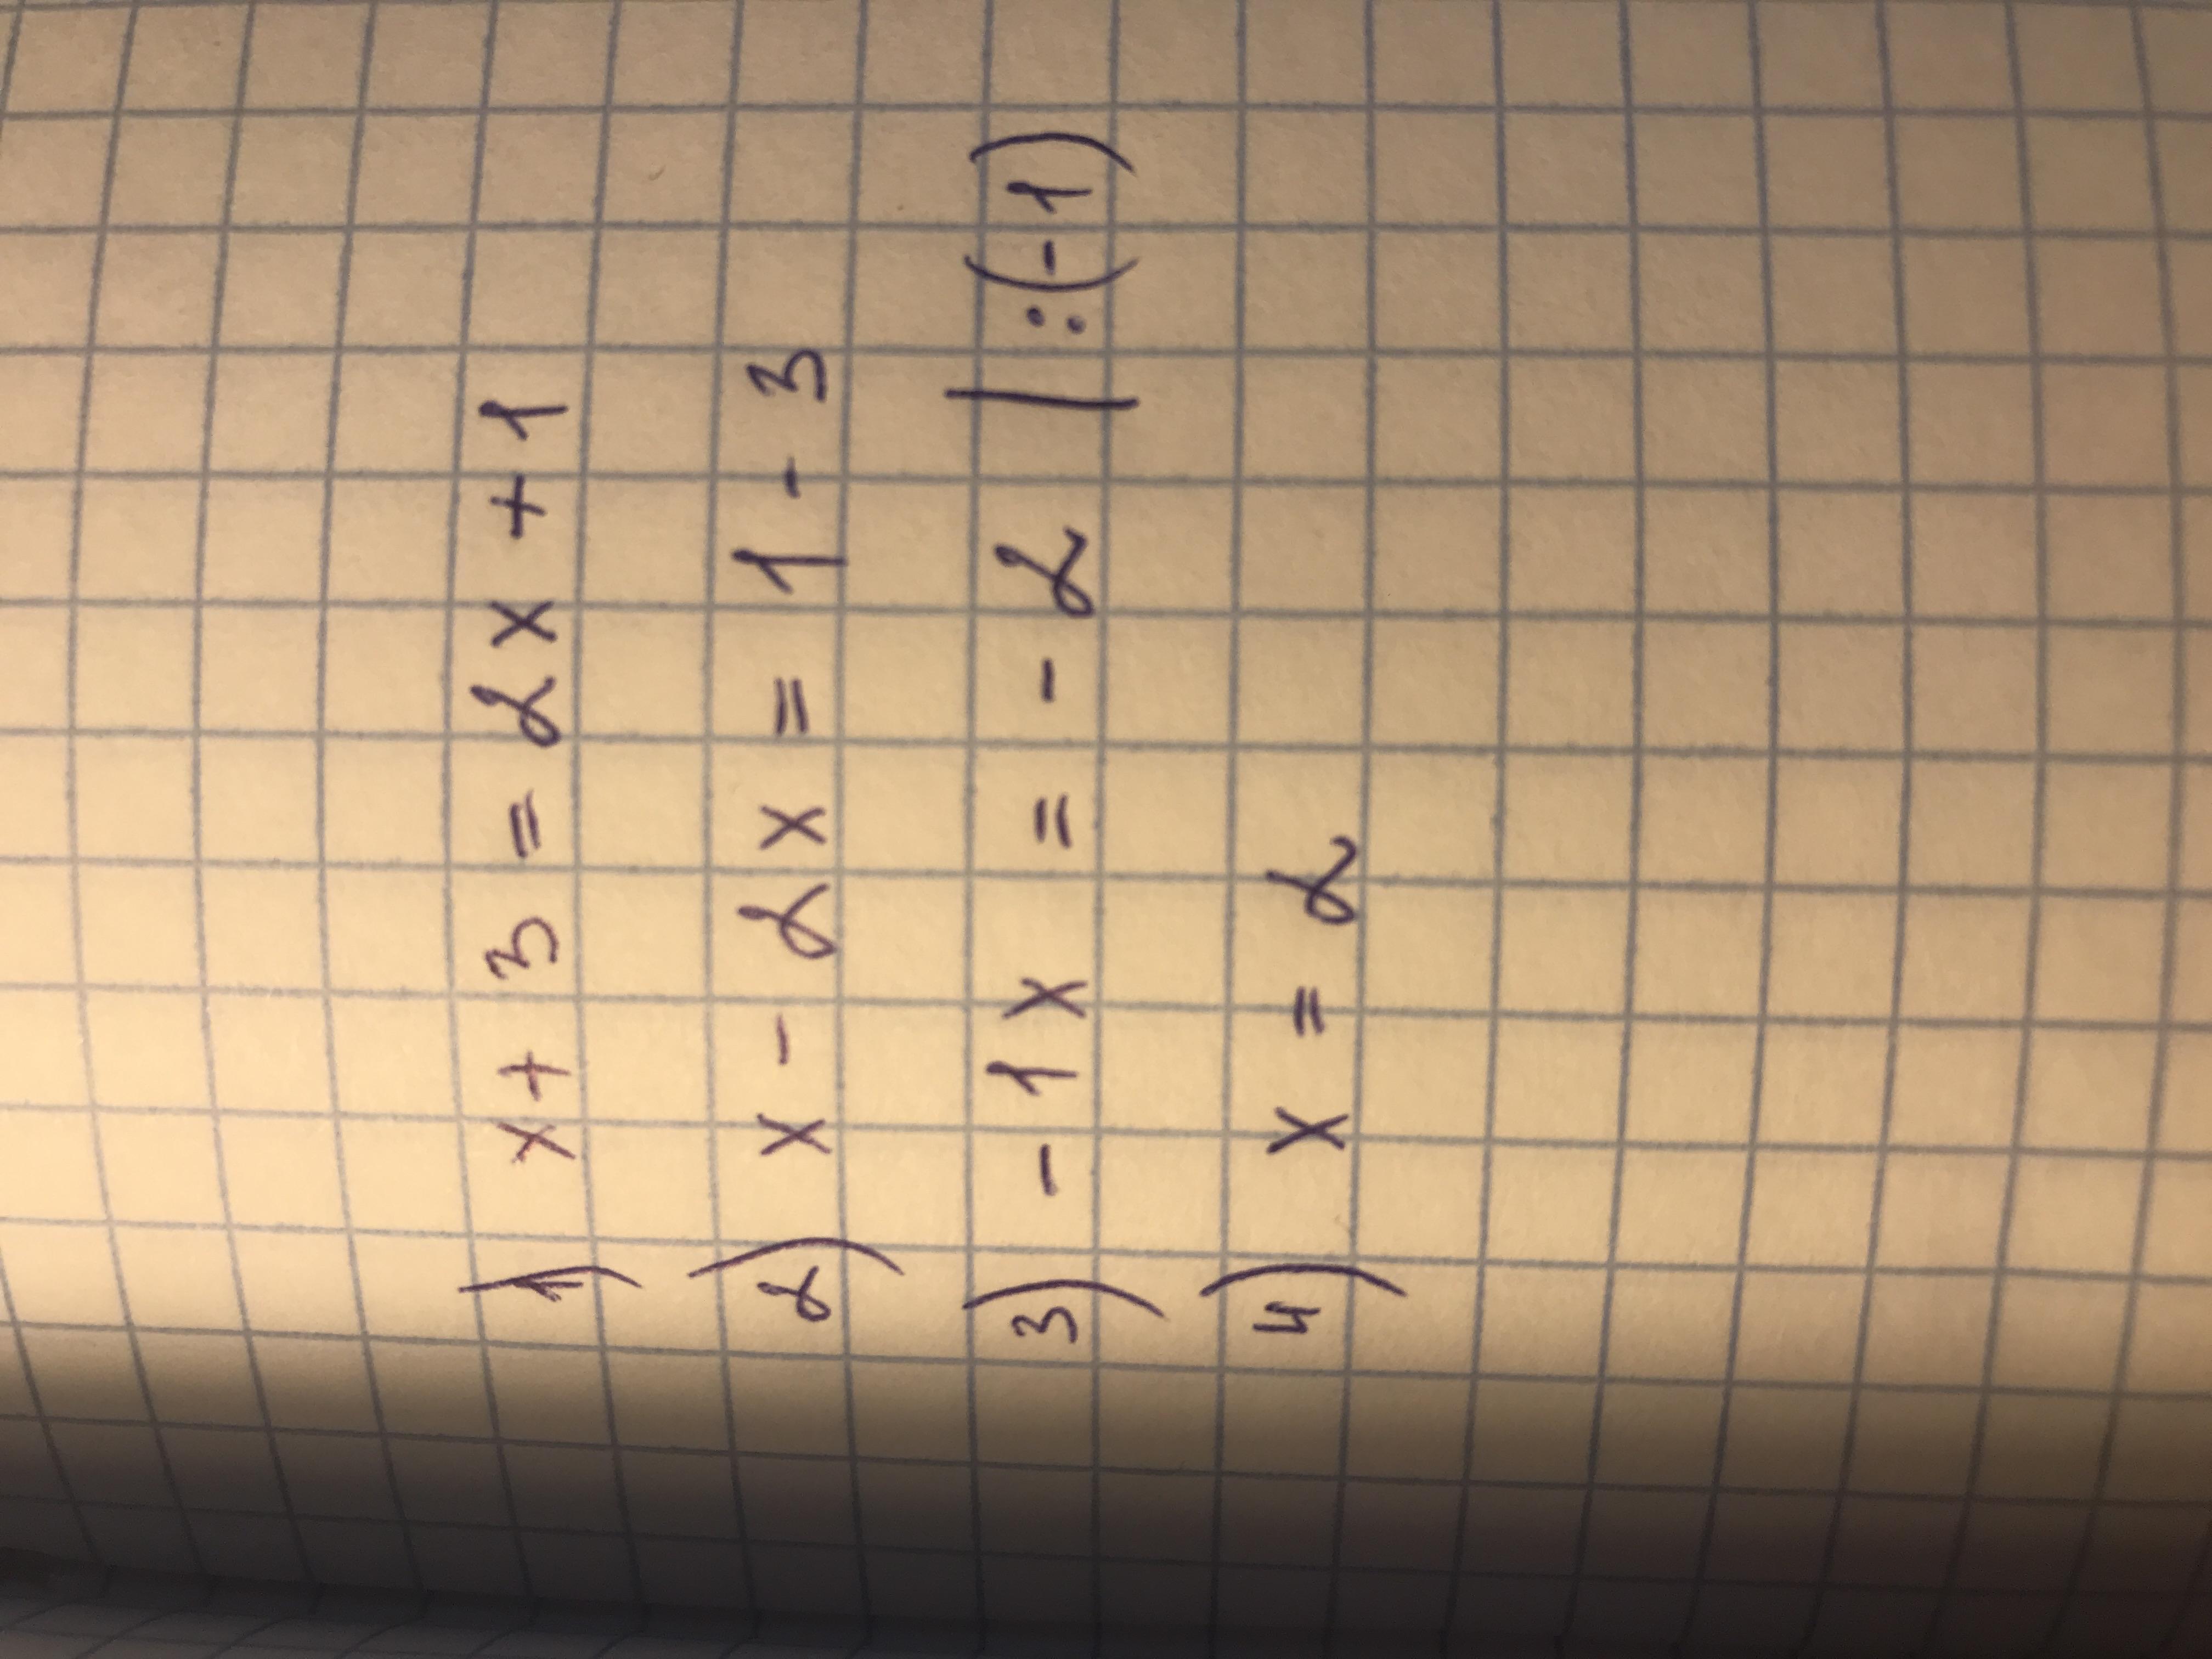 1) x + 3 = 2x + 1
2) x - 2x = 1 - 3
3) - 1x = - 2 | :(-1)
4) x = 2